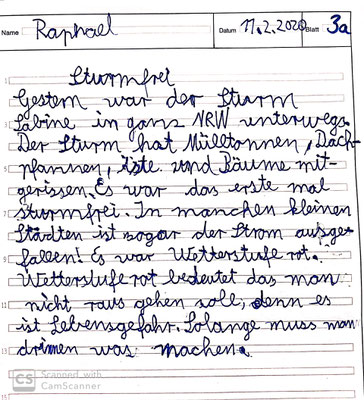 Name Raphael Datum 11.2.2020 Blatt 3a
Sturmfrei
Gestern war der Sturm
Sabine in ganz NRW unterwegs.
Der Sturm hat Mülltonnen, Dach-
pfannen, Äste und Bäume mit-
gerissen. Es war das erste mal
sturmfrei. In manchen kleinen
Städten ist sogar der Strom ausge-
fallen! Es war Wetterstufe rot.
Wetterstufe rot bedeutet das man
nicht raus gehen soll, denn es
ist Lebensgefahr. Solange muss man
drinnen was machen.
CS Scanned with
CamScanner